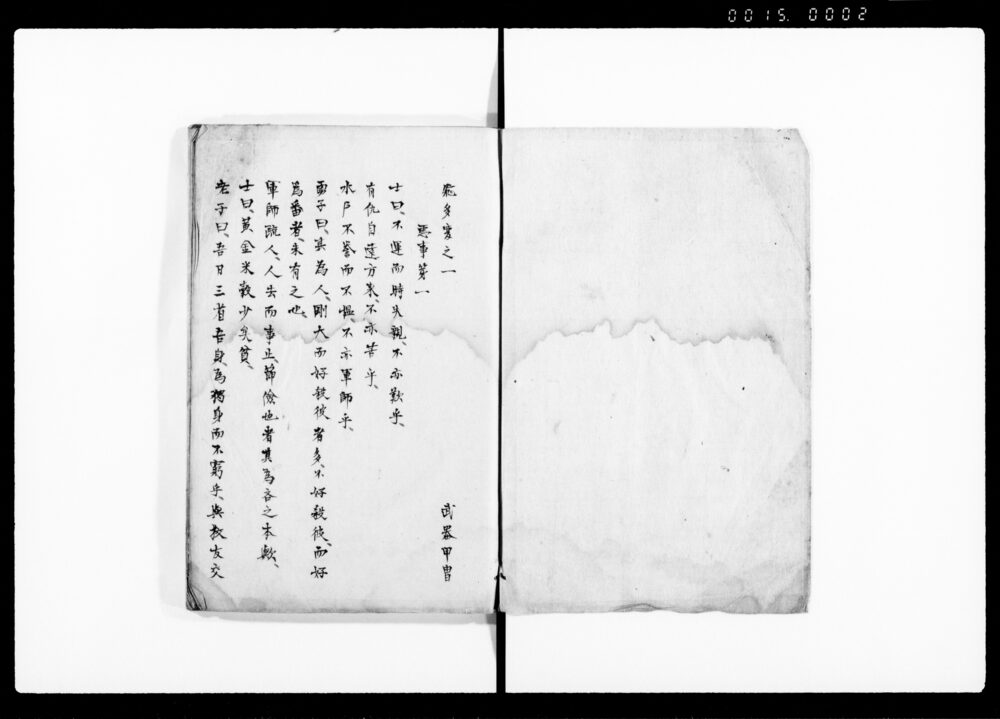 0015. 0002
悪多変之一 武器甲冑
悪事第一
士曰、不運而時失親、不亦歎乎、
有仇自遠方来、不亦苦乎、
水戸不誉而不慍、不亦軍師乎、
勇子曰、其為人、剛大而好殺彼者多、不好殺彼、而好
為番者、未有之也、
軍師疏人、人去而事止、節倹也者其為吝之本歟、
士曰、黄金米穀少矣貧、
宅子曰、吾日三省吾身、為独身而不窮乎、与故友交